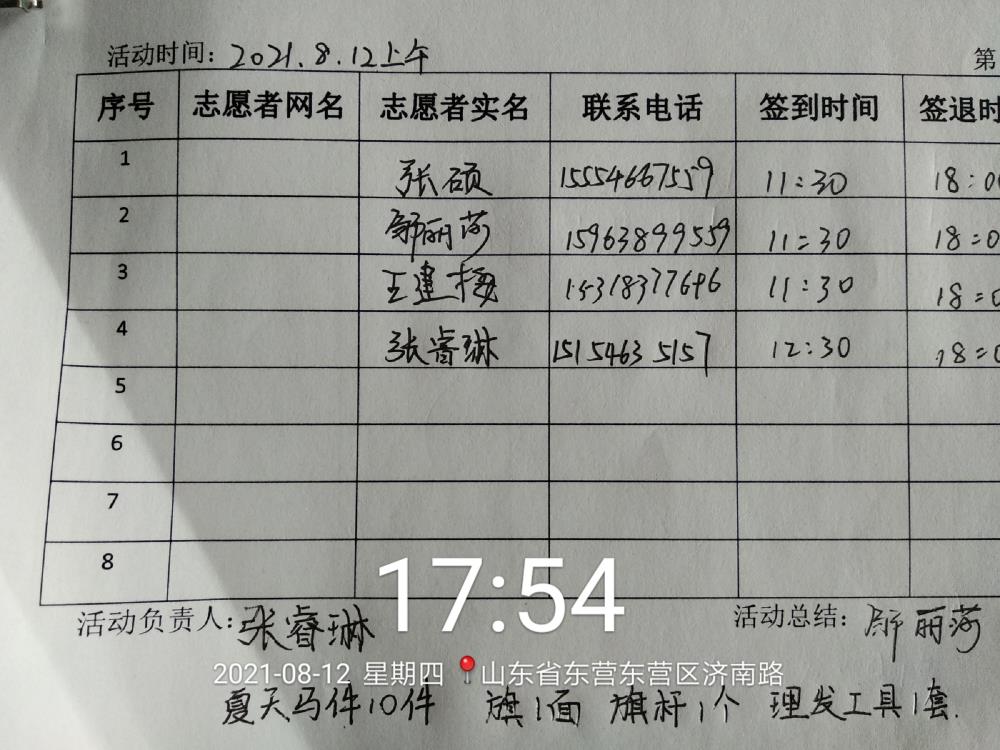 活动时间：2021.8.12上午 第
序号 志愿者网名 志愿者实名 联系电话 签到时间 签退时
1 张硕 15554667559 11:30 18:00
2 邹丽莎 15963899559 11:30 18:0
3 王建梅 15318377646 11:30 18:0
4 张睿琳 15154635157 12:30 18:0
5
6
7
8
17:54
活动负责人：张睿琳 活动总结：邹丽莎
2021-08-12 星期四 山东省东营东营区济南路
夏天马件10件 旗1面 旗杆1个 理发工具1套.